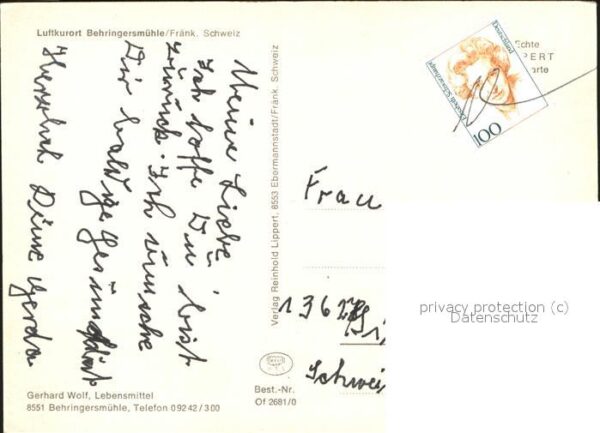 Luftkurort Behringersmühle/Fränk. Schweiz
Meine Liebe,
Ich hoffe Du bist
zurück. Ich wünsche
Dir baldige Gesundheit
Herzlich Deine Gerda
Gerhard Wolf, Lebensmittel
8551 Behringersmühle, Telefon 09242/300
Verlag Reinhold Lippert, 8553 Ebermannstadt/Fränk. Schweiz
Best.-Nr.
Of 2681/0
Deutschland
Elisabeth Schwarzhaupt
100
Echte
PERT
arte
Frau
Schwei
privacy protection (c)
Datenschutz